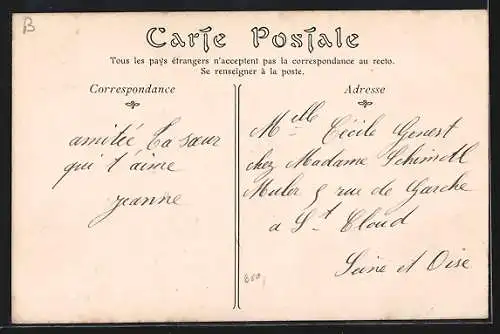 B
Carte Postale
Tous les pays étrangers n'acceptent pas la correspondance au recto.
Se renseigner à la poste.
Correspondance
amitiée ta sœur
qui t'aime
Jeanne
Adresse
Melle Cécile Genest
chez Madame
5 rue de Garche
a St Cloud
Seine et Oise